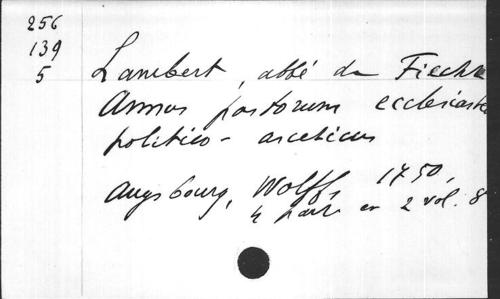 256
139
5
Lambert, abbé de Fiecht
Annus pastorum ecclesiaste
politico-asceticus
Augsbourg, Wolff, 1750,
4 part. en 2 vol. 8